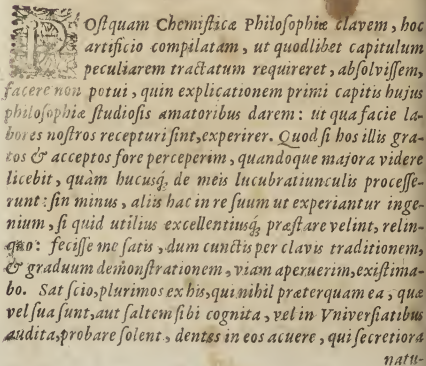 POſtquam Chemiſticæ Philoſophiæ clavem, hoc
artificio compilatam, ut quodlibet capitulum
peculiarem tractatum requireret, abſolviſſem,
facere non potui, quin explicationem primi capitis hujus
philoſophiæ ſtudioſis amatoribus darem: ut qua facie la-
bores noſtros recepturi ſint, experirer. Quod ſi hos illis gra-
tos & acceptos fore perceperim, quandoque majora videre
licebit, quàm hucuſq; de meis lucubratiunculis proceſſe-
runt: ſin minus, aliis hac in re ſuum ut experiantur inge-
nium, ſi quid utilius excellentiuſq; præſtare velint, relin-
quo: feciſſe me ſatis, dum cunctis per clavis traditionem,
& graduum demonſtrationem, viam aperuerim, exiſtima-
bo. Sat ſcio, plurimos ex his, qui nihil præterquam ea, quæ
vel ſua ſunt, aut ſaltem ſibi cognita, vel in Vniverſiatibus
audita, probare ſolent, dentes in eos acuere, qui ſecretiora
natu-